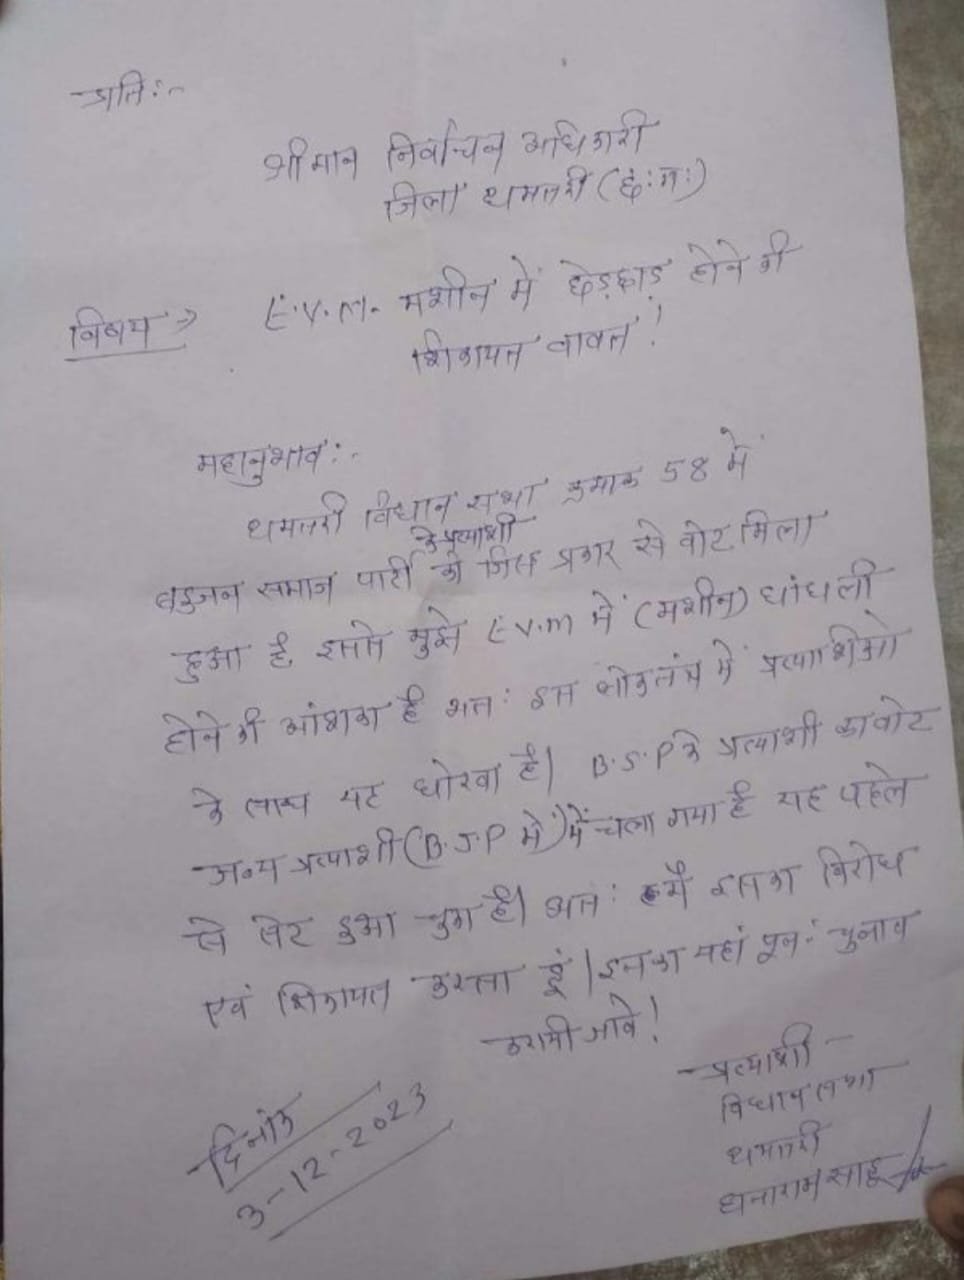 प्रति:-
श्रीमान निर्वाचन अधिकारी
जिला धमतरी (छ:ग:)
विषय => E.V.M. मशीन में छेड़छाड़ होने की
शिकायत बावत!
महानुभाव:-
धमतरी विधान सभा क्रमांक 58 में
के प्रत्याशी
बहुजन समाज पार्टी को जिस प्रकार से वोट मिला
हुआ है, इससे मुझे E.V.M में (मशीन) धांधली
होने की आंशका है अत: इस लोकतंत्र में प्रत्याशिओ
के साथ यह धोखा है। B.S.P के प्रत्याशी का वोट
अन्य प्रत्याशी (B.J.P में) में चला गया है यह पहले
से सेट हुआ है। अत: मै इसका विरोध
एवं शिकायत करता हूं। इसका यहां पुन: चुनाव
करायी जावे!
दिनांक
3-12-2023
प्रत्याशी
विधानसभा
धमतरी
धनाराम साहू